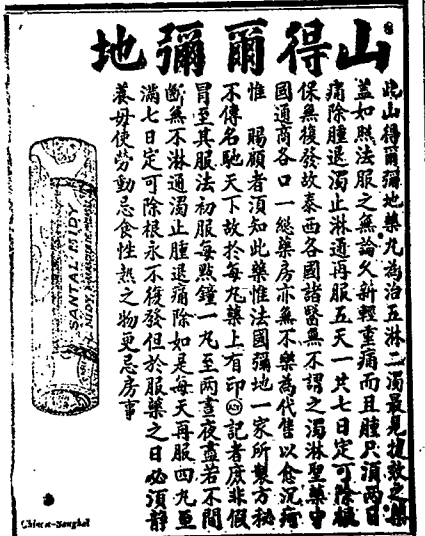 山得爾彌地
此山得爾彌地藥丸為治五淋二濁最見捷效之藥
蓋如照法服之無論久新輕重痛而且腫只須兩日
痛除腫退濁止淋通再服五天一共七日定可除根
保無復發故泰西各國諸醫無不謂之濁淋聖藥中
國通商各口一總藥房亦無不樂為代售以愈沉疴
惟 賜顧者須知此藥惟法國彌地一家所製方秘
不傳名馳天下故於每丸藥上有印MIDY記者庶非假
冒至其服法初服每點鐘一丸至兩晝夜盡若不間
斷無不淋通濁止腫退痛除如是每天再服四九至
滿七日定可除根永不復發但於服藥之日必須靜
養毋使勞動忌食性熱之物更忌房事
SANTAL MIDY
China-Sanghai